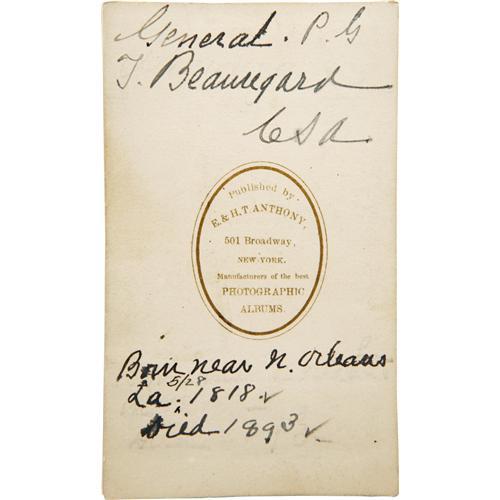 General. P. G
T. Beauregard
CSA
Published by
E. & H. T. ANTHONY,
501 Broadway,
NEW-YORK.
Manufacturers of the best
PHOTOGRAPHIC
ALBUMS.
Born near N. Orleans
5/28
La. 1818
Died 1893